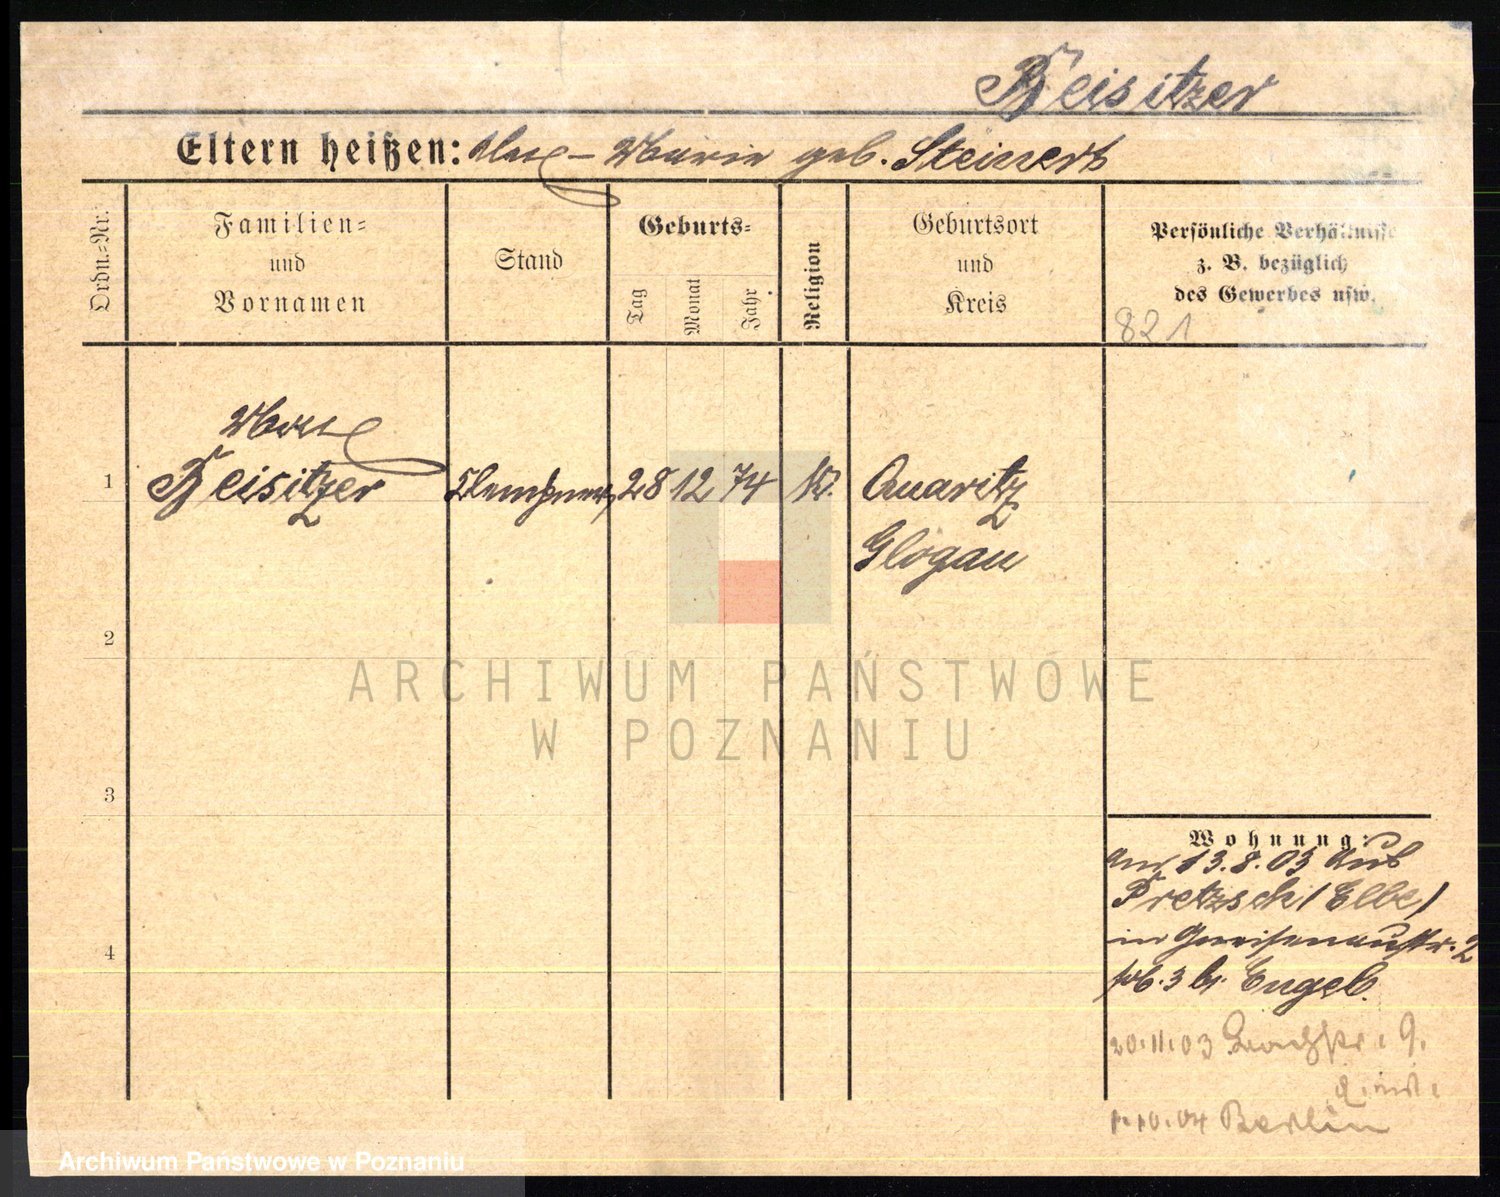 Beisitzer
Eltern heißen: Max – Marie geb. Steinert
Ordn.-Nr.
Familien-
und
Vornamen
Stand
Geburts-
Tag
Monat
Jahr
Religion
Geburtsort
und
Kreis
Persönliche Verhältnisse
z. B. bezüglich
des Gewerbes usw.
821
Max
1 Beisitzer Klempner 28 12 74 K. Quaritz
Glogau
2
3
4
Wohnung:
13.8.03 aus
Pretzsch (Elbe)
in Gneisenaustr. 2
b. Engel.
20.11.03 9.
1.10.04 Berlin
ARCHIWUM PAŃSTWOWE
W POZNANIU
Archiwum Państwowe w Poznaniu